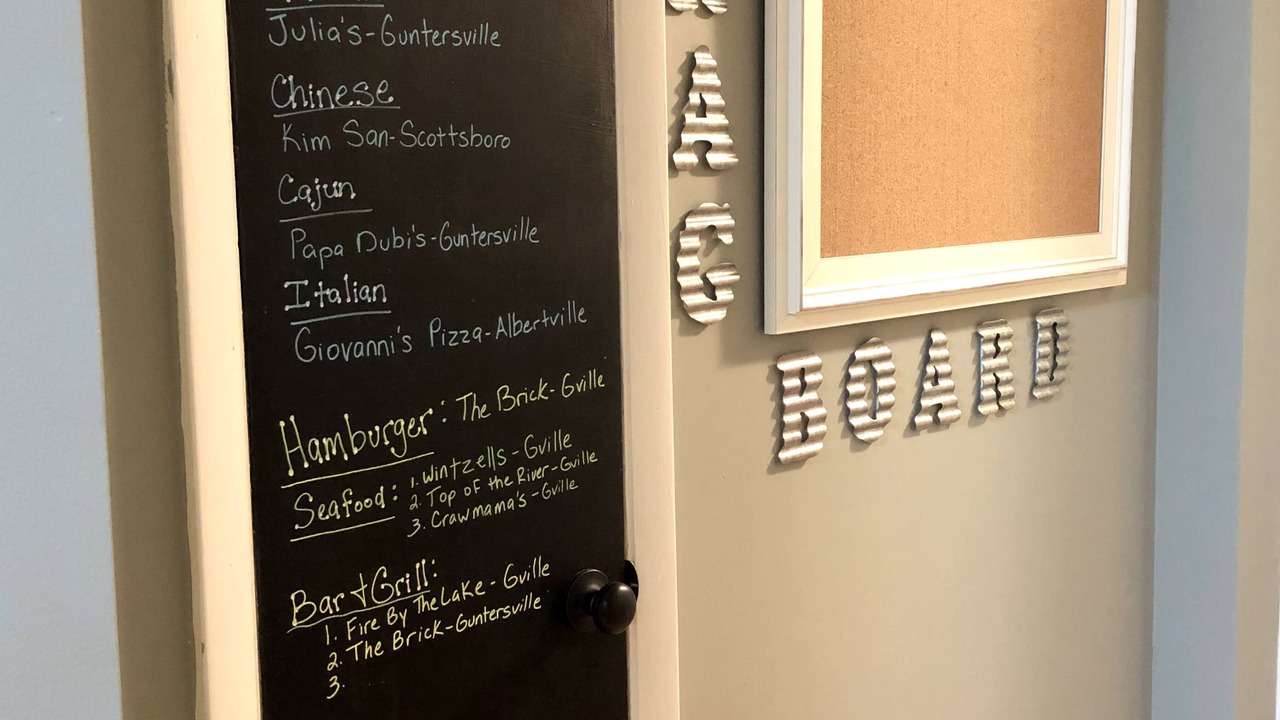 Julia's-Guntersville
Chinese
Kim San-Scottsboro
Cajun
Papa Dubi's-Guntersville
Italian
Giovanni's Pizza-Albertville
Hamburger: The Brick-Gville
Seafood: 1. Wintzells-Gville
2. Top of the River-Gville
3. Crawmama's-Gville
Bar + Grill:
1. Fire By The Lake-Gville
2. The Brick-Guntersville
3.
A
G
BOARD